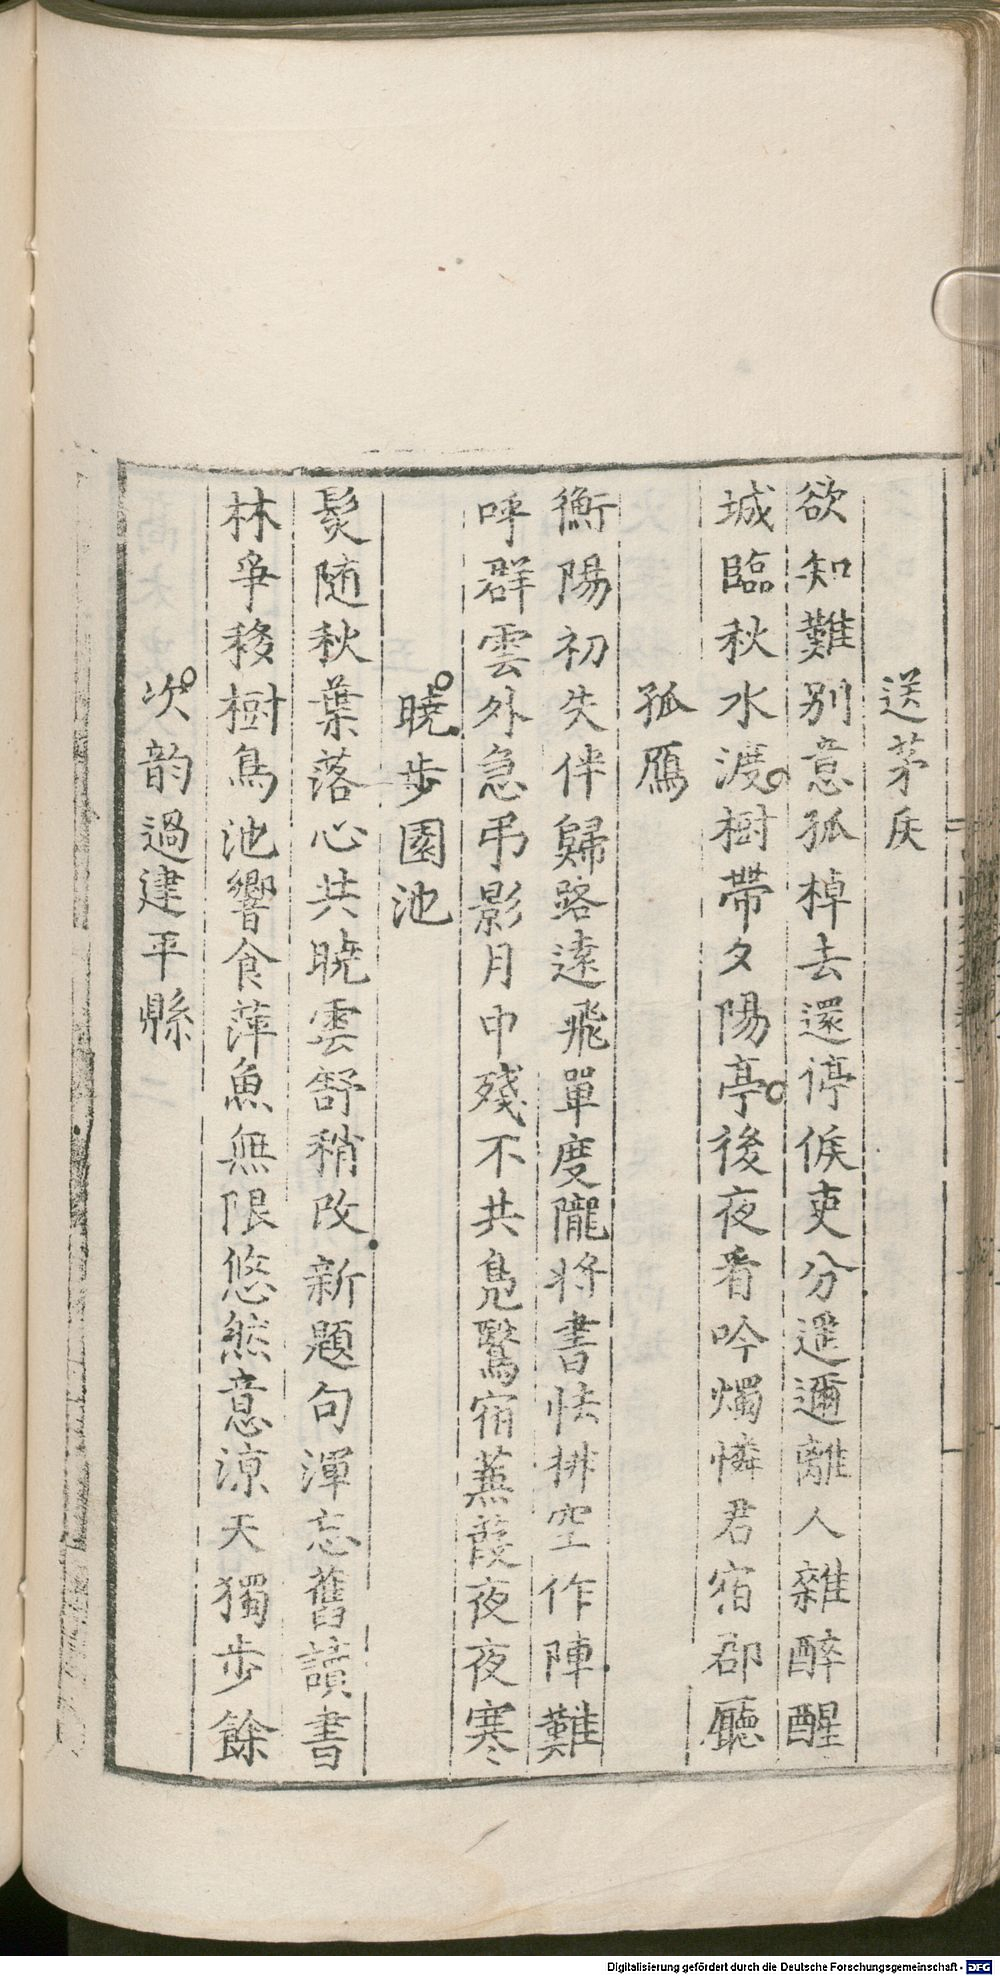 送茅灰
欲知難別意孤棹去還停候吏分遥邇離人雜醉醒
城臨秋水渡樹帶夕陽亭後夜看吟燭憐君宿郡廳
孤鴈
衡陽初失伴歸路遠飛單度隴將書怯排空作陣難
呼群雲外急弔影月中殘不共鳧鷖宿蒹葭夜夜寒
曉步園池
髮随秋葉落心共曉雲舒稍改新題句渾忘舊讀書
林爭移樹鳥池響食萍魚無限悠然意涼天獨步餘
次韵過建平縣
Digitalisierung gefördert durch die Deutsche Forschungsgemeinschaft - DFG